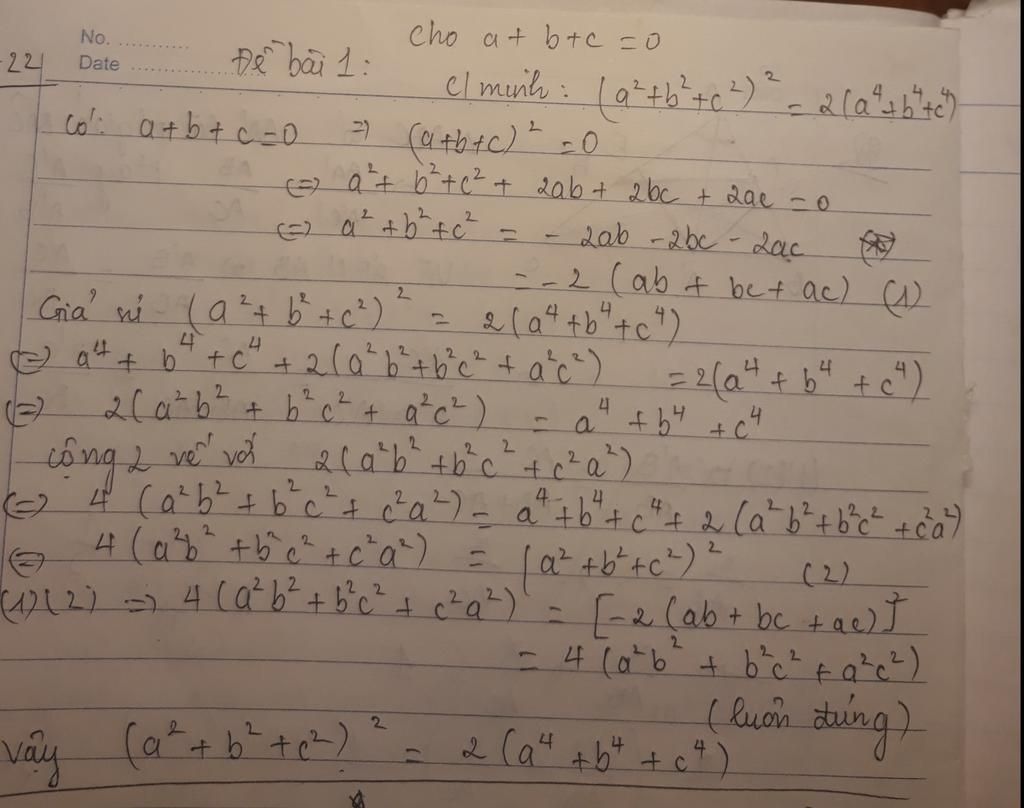 No. ..........
Cho a + b + c = 0
22
Date ..............
Đề bài 1:
C/minh: (a² + b² + c²)² = 2(a⁴ + b⁴ + c⁴)
Có: a + b + c = 0 => (a+b+c)² = 0
<=> a² + b² + c² + 2ab + 2bc + 2ac = 0
<=> a² + b² + c² = - 2ab - 2bc - 2ac
= -2 (ab + bc + ac) (1)
Giả sử (a² + b² + c²)² = 2(a⁴ + b⁴ + c⁴)
<=> a⁴ + b⁴ + c⁴ + 2(a²b² + b²c² + a²c²) = 2(a⁴ + b⁴ + c⁴)
<=> 2(a²b² + b²c² + a²c²) = a⁴ + b⁴ + c⁴
cộng 2 vế với 2(a²b² + b²c² + c²a²)
<=> 4 (a²b² + b²c² + c²a²) = a⁴ + b⁴ + c⁴ + 2(a²b² + b²c² + c²a²)
<=> 4(a²b² + b²c² + c²a²) = (a² + b² + c²)² (2)
(1)(2) => 4(a²b² + b²c² + c²a²) = [-2(ab + bc + ac)]²
= 4(a²b² + b²c² + a²c²)
(luôn đúng)
Vậy (a² + b² + c²)² = 2(a⁴ + b⁴ + c⁴)